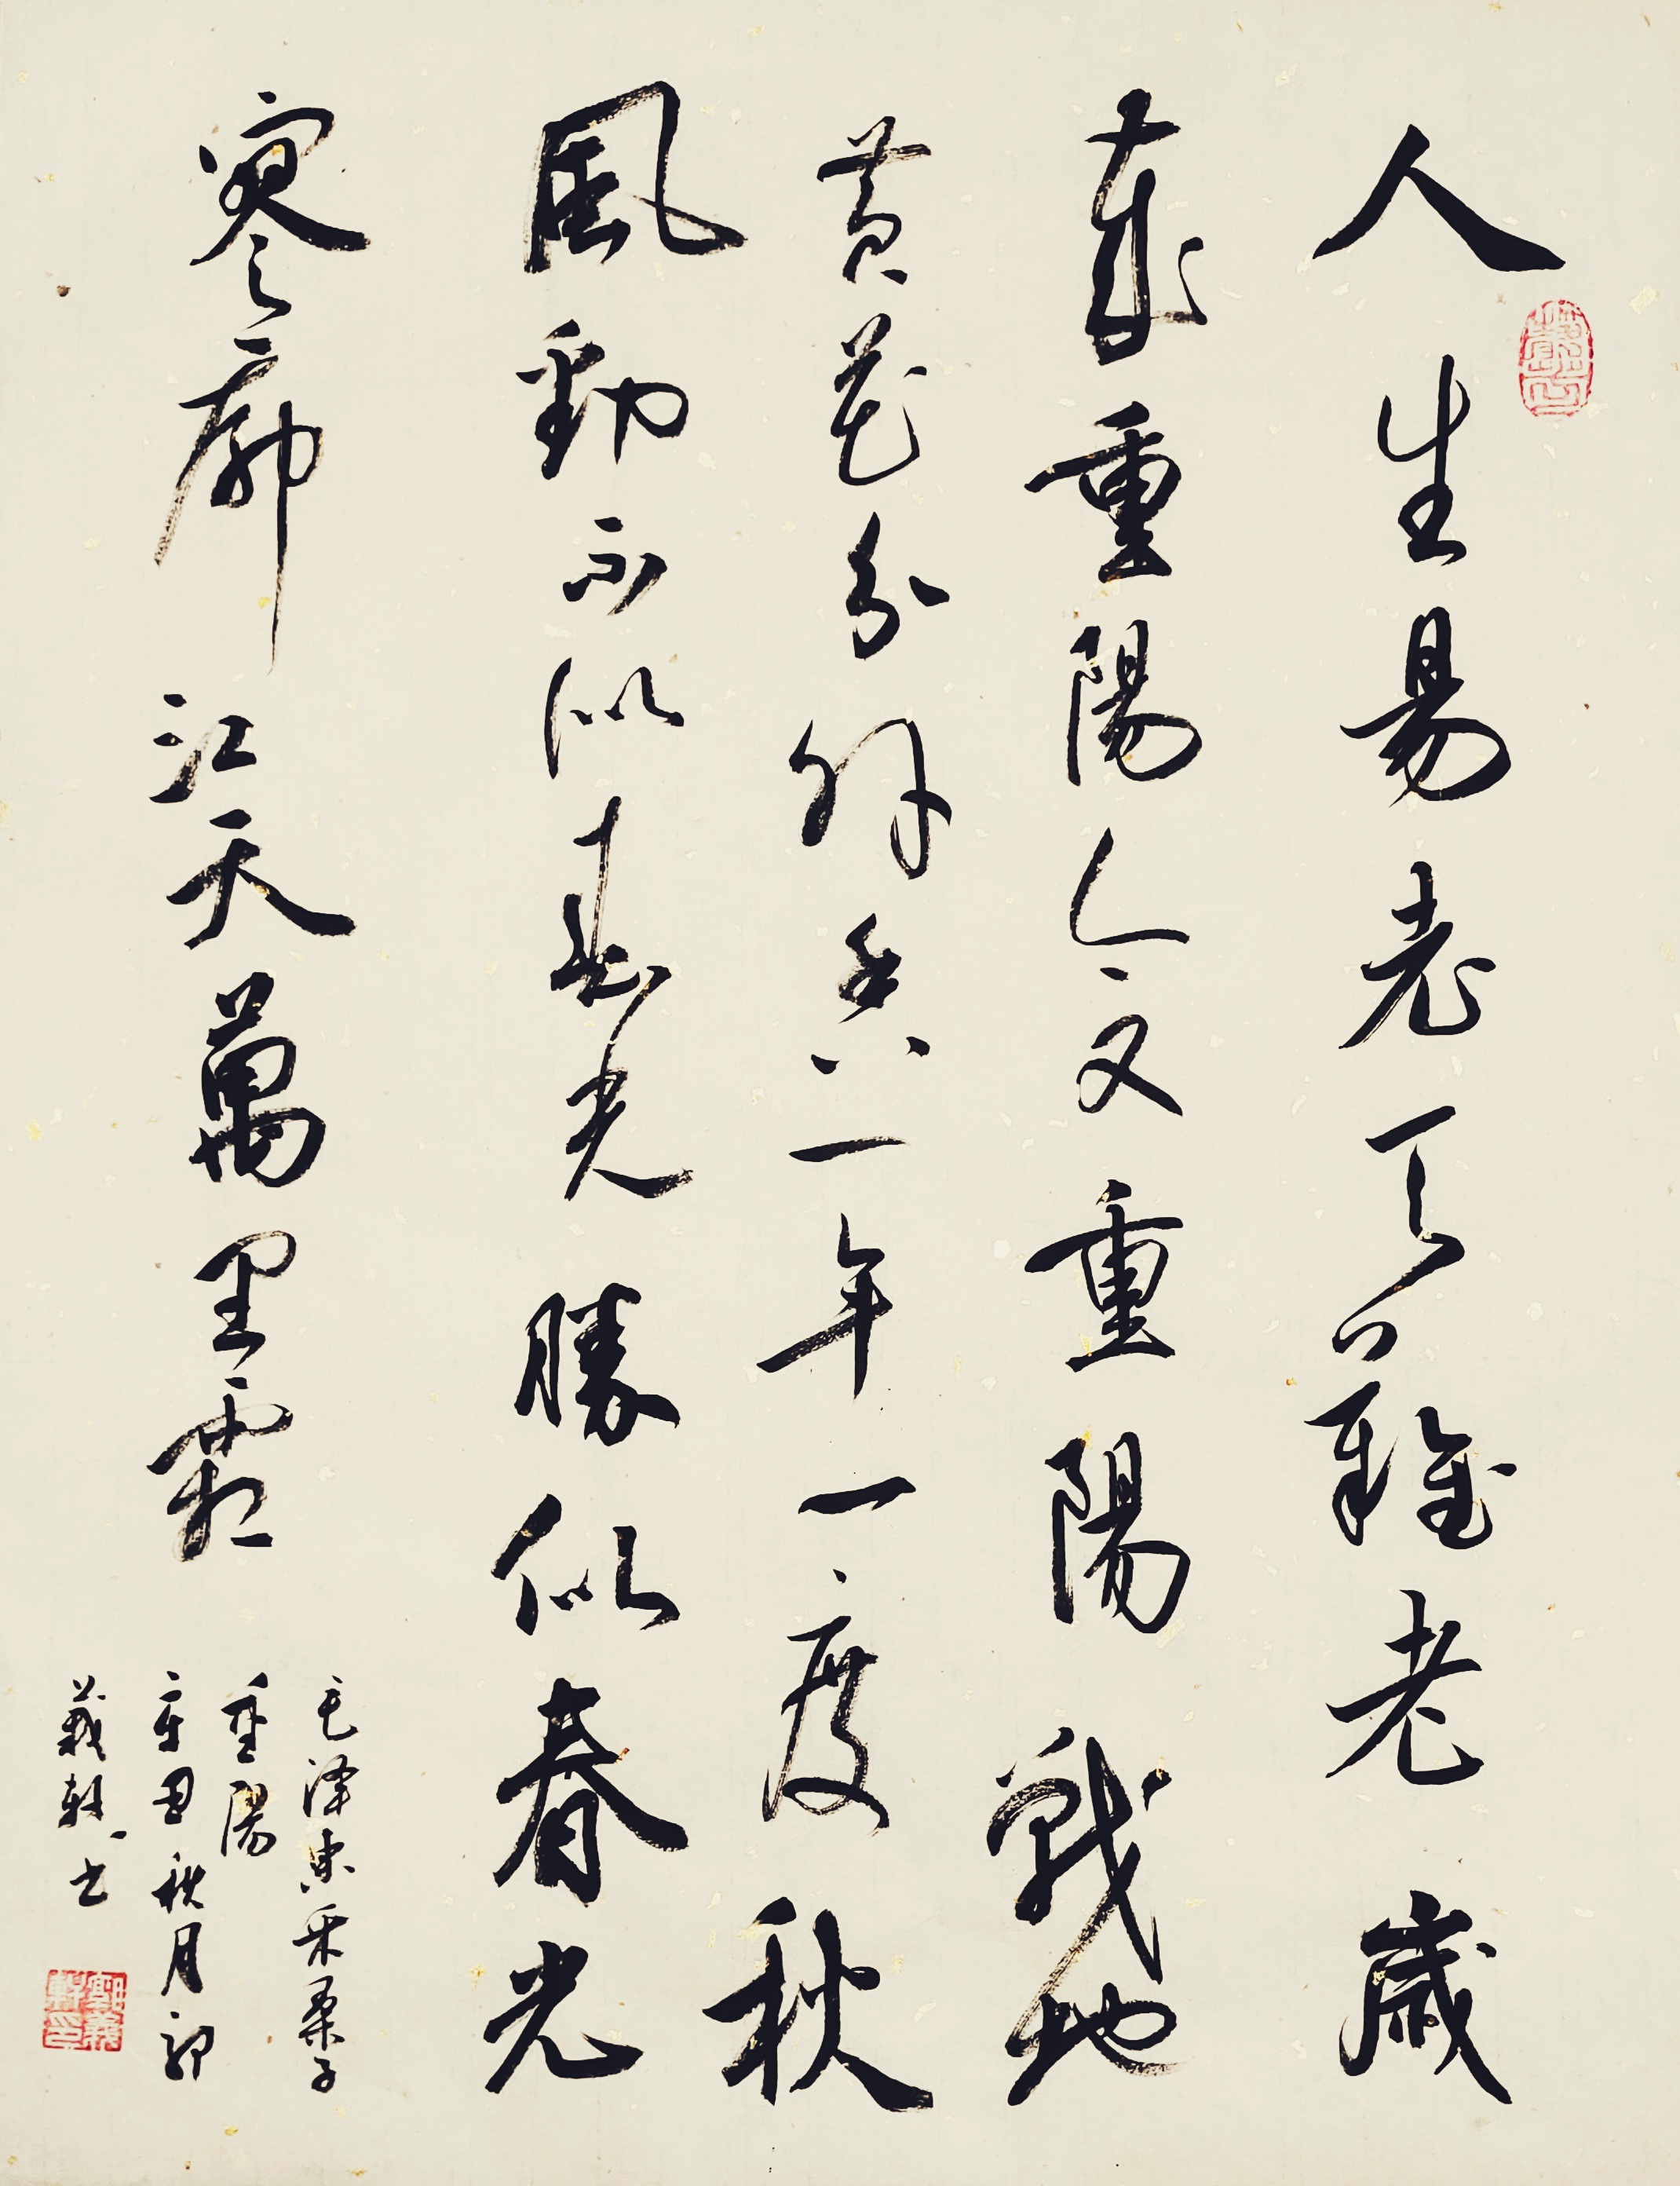 人生易老天難老歲
歲重陽今又重陽戰地
黄花分外香一年一度秋
風勁不似春光勝似春光
寥廓江天萬里霜
毛泽東采桑子
重陽
辛丑秋月
義軒书